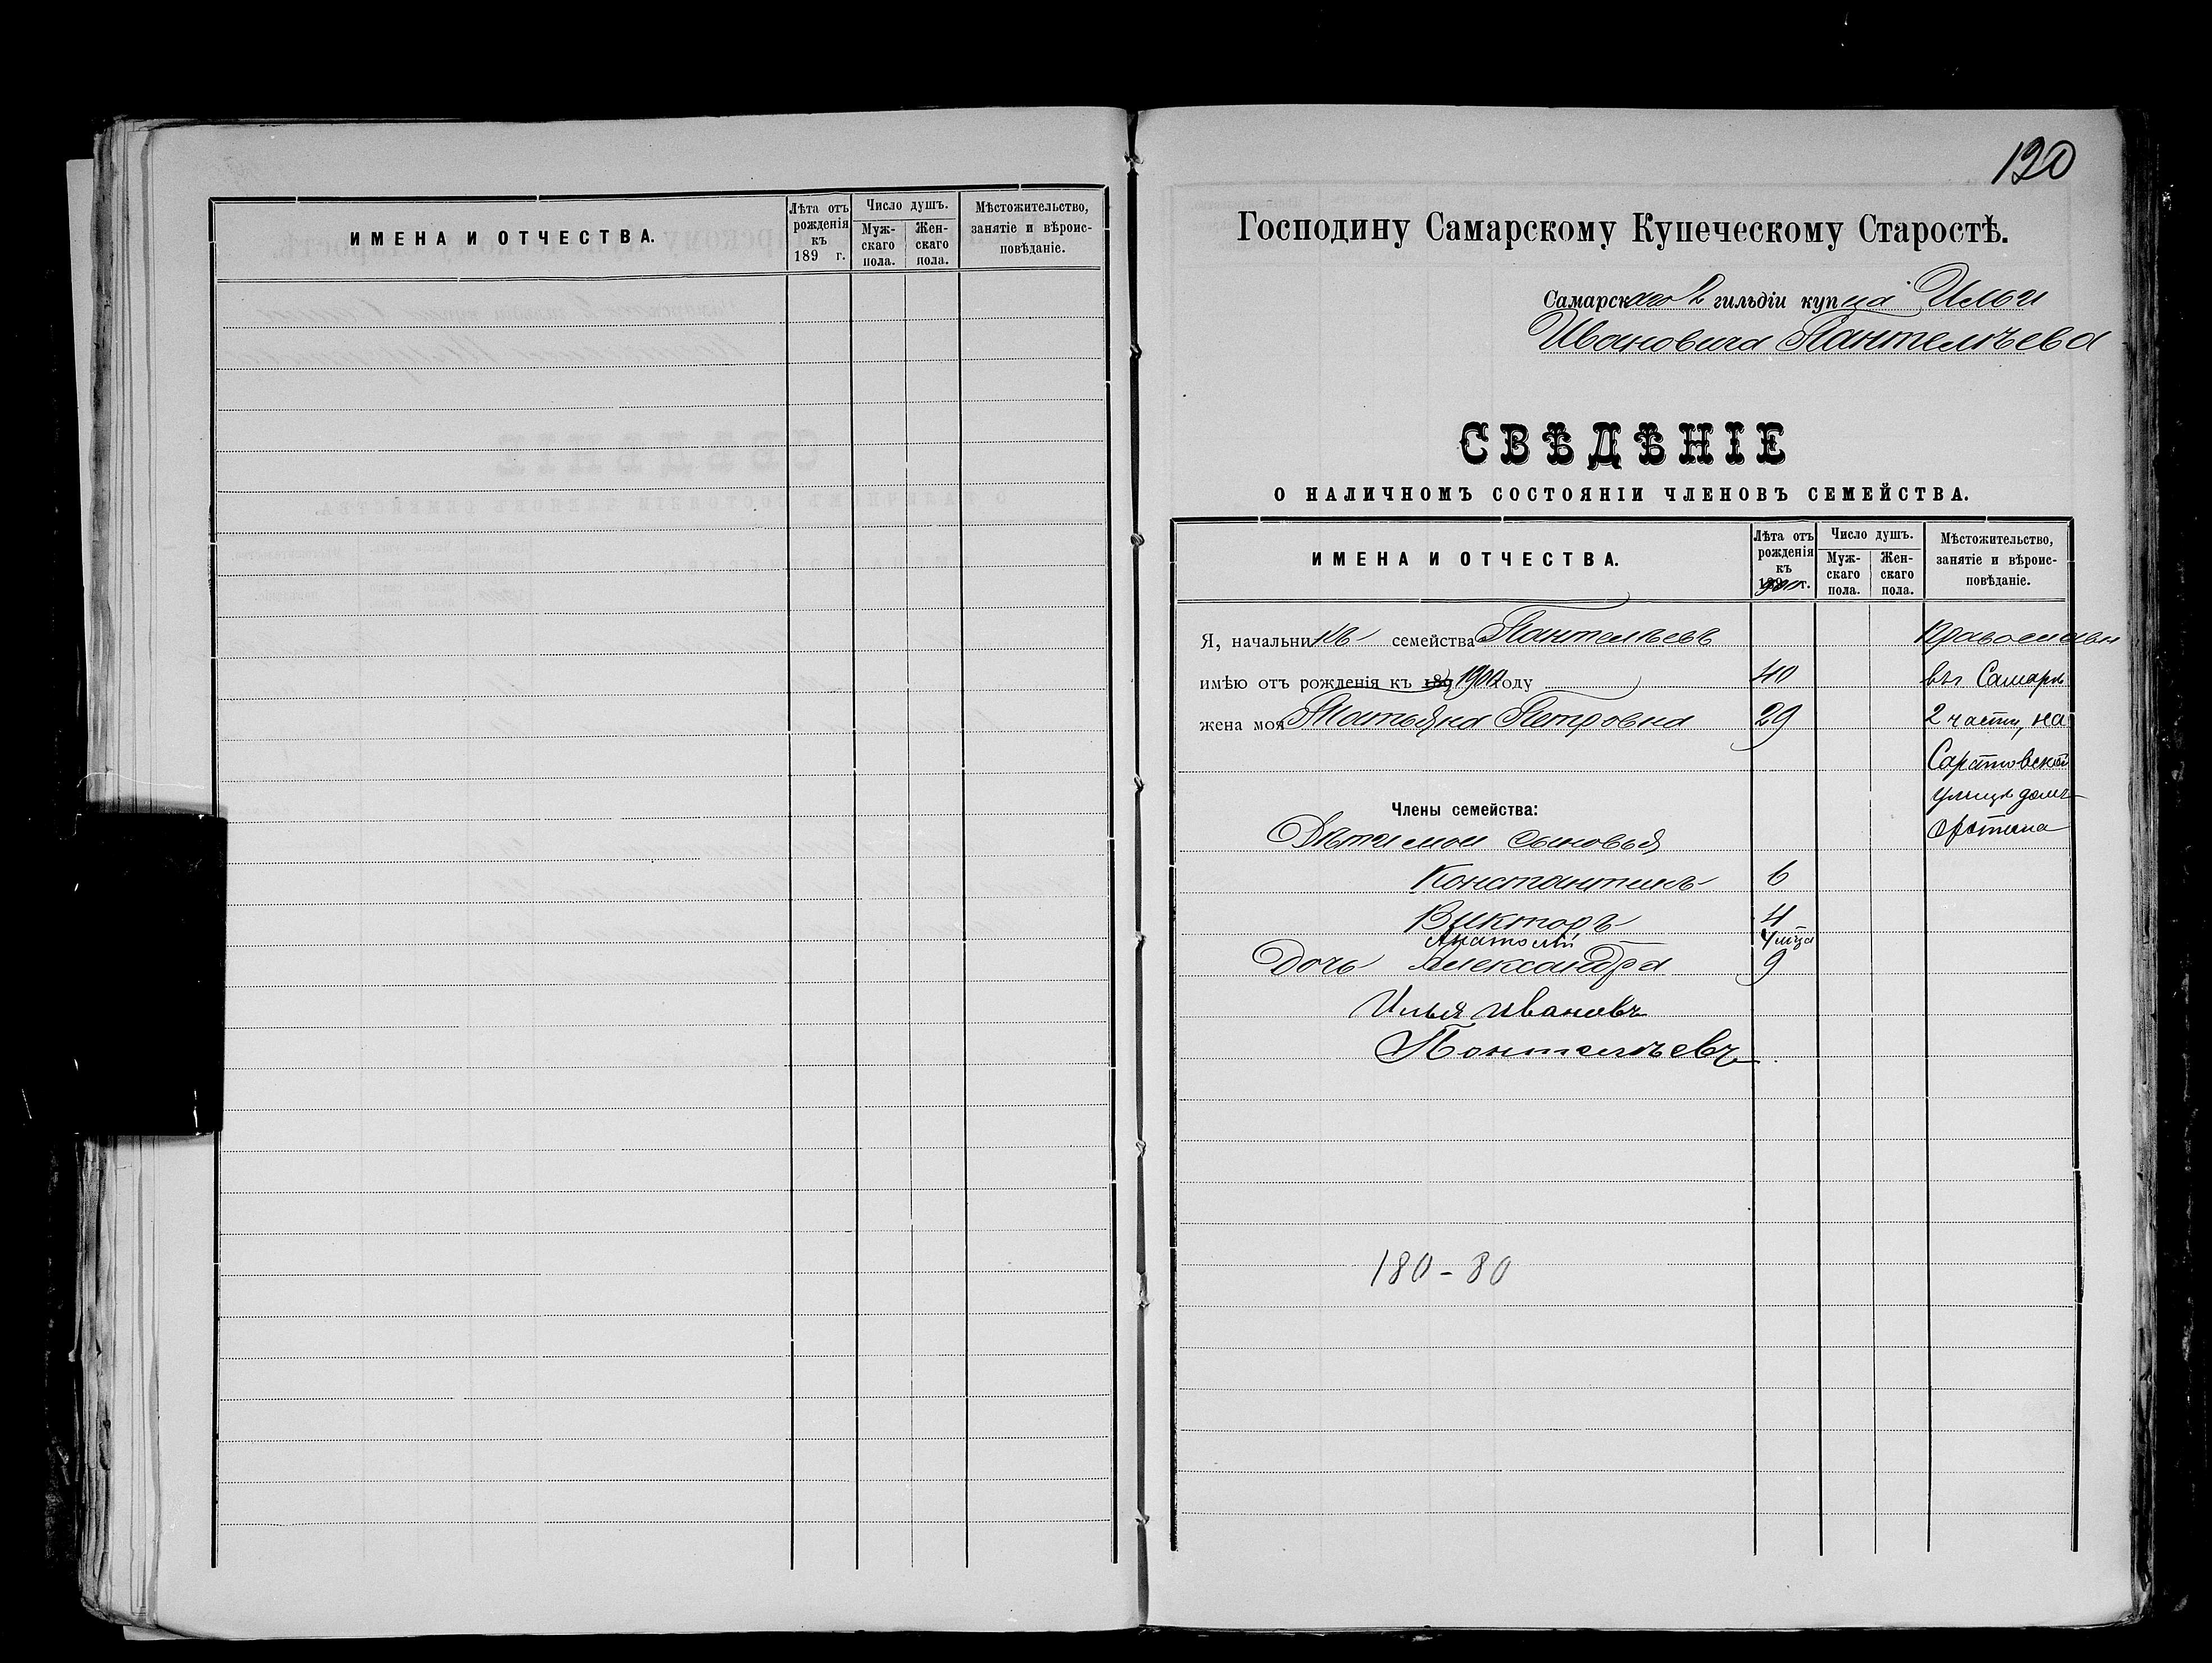 ИМЕНА И ОТЧЕСТВА.
Лѣта отъ рожденія къ 189 г.
Число душъ.
Муж-скаго пола.
Жен-скаго пола.
Мѣстожительство, занятіе и вѣроис-повѣданіе.
120
Господину Самарскому Купеческому Старостѣ.
Самарскаго 2 гильдіи купца Ильи
Ивановича Пантелѣева
СВѢДѢНІЕ
О НАЛИЧНОМЪ СОСТОЯНІИ ЧЛЕНОВЪ СЕМЕЙСТВА.
ИМЕНА И ОТЧЕСТВА.
Лѣта отъ
рожденія
къ
г.
Число душъ.
Муж-
скаго
пола.
Жен-
скаго
пола.
Мѣстожительство,
занятіе и вѣроис-
повѣданіе.
Я, начальникъ семейства Пантелѣевъ Православн
имѣю отъ рожденія къ 189 1900 году 40 въ Самарѣ
жена моя Татьяна Петровна 29 2 части, на
Саратовской
улицѣ домъ
Члены семейства:
Дѣти мои сыновья
Константинъ 6
Викторъ 4
Анатолій 4 мѣца
Дочь Александра 9
Илья Ивановъ
Понтелѣевъ
180-80